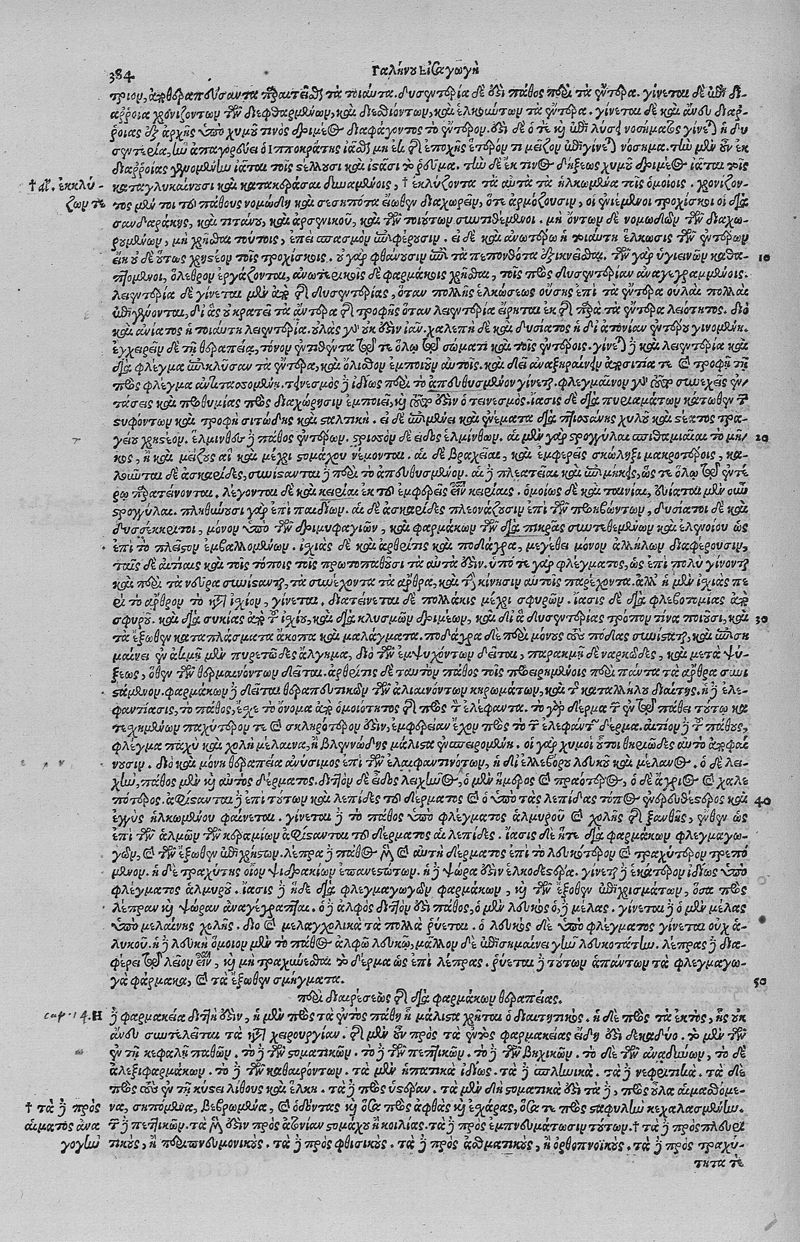 384 Γαλήνου εἰσαγωγὴ
τριον, ἀποθεραπεύσαντα προστεθῇ τὰ τοιαῦτα. δυσεντερία δέ ἐστι πάθος περὶ τὰ ἔντερα. γίνεται δὲ ἐπὶ δι-
αρροία χρόνιζόντων τῶν διεφθαρμένων, καὶ διεξιόντων, καὶ ἑλκούντων τὰ ἔντερα. γίνεται δὲ καὶ ἄνευ διαρ-
ροίας ἐξ ἀρχῆς ὑπὸ χυμοῦ τινὸς δριμέος διαφάγοντος τὸ ἔντερον. ἔστι δὲ ὅτε καὶ ἐπὶ λύσει νοσήματος γίνεται ἡ δυ-
σεντερία, ἣν ἀπαγορεύει ὁ ἱπποκράτης ἰᾶσθαι
διαρροίας γενομένην ἰᾶται τοῖς στέλλουσι καὶ ἱστᾶσι τὸ ῥεῦμα. τὴν δὲ ἔκ τινος δήξεως χυμοῦ δριμέος ἰᾶται τοῖς
† ἄλ. ἐκκλύ- καταγλυκαίνουσι καὶ κατακεράσαι δυναμένοις, † ἐκλύζοντα τὰ αὐτὰ τὰ ἡλκωμένα τοῖς ὁμοίοις. χρονίζον-
ζων τε τος μέν τοι τοῦ πάθους νομώδη καὶ σεσηπότα εἰώθεν διαχωρεῖν, ὅτε ἁρμόζουσιν, οἱ ἐνιέμενοι τροχίσκοι οἱ διὰ
σανδαράκης, καὶ τιτάνου, καὶ ἀρσενικοῦ, καὶ τῶν τοιούτων συντιθέμενοι. μὴ ὄντων δὲ νομωδῶν τῶν διαχω-
ρουμένων, μὴ χρῆσθαι τούτοις, ἐπεὶ σπασμὸν ἐπιφέρουσιν. εἰ δὲ καὶ ἀνωτέρω ἡ τοιαύτη ἕλκωσις τῶν ἐντέρων
εἴη οὐδ' οὕτως χρηστέον τοῖς τροχίσκοις. οὐ γὰρ φθάνουσιν ἐπὶ τὰ πεπονθότα ἐξικνεῖσθαι. τῶν γὰρ ὑγιεινῶν καθα- 10
πτόμενοι, ὄλεθρον ἐργάζονται, ἀνωτερικοῖς δὲ φαρμάκοις χρῆσθαι, τοῖς πρὸς δυσεντερίαν ἀναγεγραμμένοις.
λειεντερία δὲ γίνεται μὲν ἀπὸ τῆς δυσεντερίας, ὅταν πολλῆς ἑλκώσεως οὔσης ἐπὶ τὰ ἔντερα οὐλαὶ πολλαὶ
ἐπιγένωνται, δι' ἃς οὐ κρατεῖ τὰ ἔντερα τῆς τροφῆς λειεντερία εἴρηται ἐκ τῆς περὶ τὰ ἔντερα λειότητος. διὸ
καὶ ἀνίατος ἡ τοιαύτη λειεντερία. οὐλὰς γὰρ οὐκ ἔστιν ἰᾶν. χαλεπὴ δὲ καὶ δυσίατος ἡ δι' ἀτονίαν ἐντέρου γινομένη.
ἐγχειρεῖν δὲ τῇ θεραπείᾳ, τόνον ἐντιθέντα τῷ τε ὅλῳ τῷ σώματι καὶ τοῖς ἐντέροις. γίνεται καὶ λειεντερία καὶ
διὰ φλέγμα ἐπικλύσαν τὰ ἔντερα, καὶ ὄλισθον ἐμποιοῦν αὐτοῖς. καὶ δεῖ ἀναξηραίνειν ἀσιτίᾳ τε καὶ τροφῇ τῇ
πρὸς φλέγμα ἀντιτασσομένῃ. τεινεσμὸς δὲ ἰδίως περὶ τὸ ἀπευθυσμένον γίνεται. φλεγμαῖνον γὰρ τοῦτο συνεχεῖς ἐν-
τάσεις καὶ προθυμίας πρὸς διαχώρησιν ἐμποιεῖ, καὶ τοῦτό ἐστιν ὁ τεινεσμός. ἴασις δὲ διὰ πυριαμάτων κάτωθεν τῶν
στυφόντων καὶ τροφῇ σιτώδης καὶ σταλτική. εἰ δὲ ἐπιμένει καὶ ἐνέματα διὰ πτισάνης χυλοῦ καὶ στέατος τρα-
γείου χρηστέον. ἑλμίνθων δὲ πάθος ἐντέρων. τρισσὸν δὲ εἶδος ἑλμίνθων. αἱ μὲν γὰρ στρογγύλαι σπιθαμιαῖαι τὸ μῆ- 20
κος, ἢ καὶ μείζους αἳ καὶ μέχρι στομάχου νέμονται. αἱ δὲ βραχεῖαι, καὶ ἐμφερεῖς σκώληξι μακροτέροις, κα-
λοῦνται δὲ ἀσκαρίδες, συνίστανται δὲ περὶ τὸ ἀπευθυσμένον. αἱ δὲ πλατεῖαι καὶ ἐπιμήκεις, ὡς τε ὅλῳ τῷ ἐντέ-
ρῳ παρατείνονται. λέγονται δὲ καὶ κειρίαι ἐκ τοῦ ἐμφερεῖς εἶναι κειρίαις. ὁμοίως δὲ καὶ ταινίαι, εὐίατοι μὲν οὖν
στρογγύλαι. πληθύουσι γὰρ ἐπὶ παιδίων. αἱ δὲ ἀσκαρίδες πλεονάζουσιν ἐπὶ τῶν πρεσβυτέρων, δυσίατοι δὲ καὶ
δυσέκκριτοι, μόνον ὑπὸ τῶν δριμυφαγιῶν, καὶ φαρμάκων τῶν διὰ πικρᾶς συντεθειμένων καὶ ἑλενείου ὡς
ἐπὶ τὸ πλεῖστον ἐμβαλλομένων. ἰσχιὰς δὲ καὶ ἀρθρῖτις καὶ ποδάγρα, μεγέθει μόνον ἀλλήλων διαφέρουσιν,
ταῖς δὲ αἰτίαις καὶ τοῖς τόποις τοῖς πρωτοπαθοῦσι τὰ αὐτά ἐστιν. ὑπό τε γὰρ φλέγματος, ὡς ἐπὶ πολὺ γίνονται
καὶ περὶ τὰ νεῦρα συνίστανται, τὰ συνέχοντα τὰ ἄρθρα, καὶ τὴν κίνησιν αὐτοῖς παρέχοντα. ἀλλ' ἡ μὲν ἰσχιὰς πε-
ρὶ τὸ ἄρθρον τὸ κατ' ἰσχίον, γίνεται. διατείνεται δὲ πολλάκις μέχρι σφυρῶν. ἴασις δὲ διὰ φλεβοτομίας ἀπὸ
σφυροῦ. καὶ διὰ σικύας ἀπὸ τοῦ ἰσχίου, καὶ διὰ κλυσμῶν δριμέων, καὶ δι' ἃ δυσεντερίας τρόπον τινὰ ποιοῦσι, καὶ 30
τὰ ἔξωθεν καταπλάσματα ἄκοπα καὶ μαλάγματα. ποδάγρα δὲ περὶ μόνους τοὺς πόδας συνίσταται, καὶ ἐπιση-
μαίνει ἐν ἀκμῇ μὲν πυρετῶδες ἄλγημα, διὸ τῶν ἐμψυχόντων δεῖται, παρακμῇ δὲ ναρκῶδες, καὶ μετὰ ψύ-
ξεως, ὅθεν τῶν θερμαινόντων δεῖται. ἀρθρῖτις δὲ ταυτὸν πάθος τοῖς προειρημένοις περὶ πάντα τὰ ἄρθρα συνι-
στάμενον. φαρμάκων δὲ δεῖται θεραπευτικῶν τῶν λιαινόντων κηρωμάτων, καὶ τῆς καταλλήλου διαίτης. ἡ δὲ ἐλε-
φαντίασις, τὸ πάθος, ἔχει τὸ ὄνομα ἀπὸ ὁμοιότητος τῆς πρὸς τὸν ἐλέφαντα. τὸ γὰρ δέρμα τῶν ἐν τῷ πάθει τούτῳ κα-
τεχημένων παχύτερόν τε καὶ σκληρότερόν ἐστιν, ἐμφέρειαν ἔχον πρὸς τὸ τῶν ἐλεφάντων δέρμα. αἴτιον δὲ τοῦ πάθους,
φλέγμα παχὺ καὶ χολὴ μέλαινα, ἢ βλεννώδης μάλιστα ἐνσπειρομένη. οἱ γὰρ χυμοὶ οὗτοι θηριῶδες αὐτὸ ἀποφαί-
νουσιν. διὸ καὶ μόνη θεραπεία ἀνύσιμος ἐπὶ τῶν ἐλεφαντιώντων, ἡ δι' ἐλλεβόρου λευκοῦ καὶ μέλανος. ὁ δὲ λει-
χήν, πάθος μὲν καὶ αὐτὸς δέρματος. διττὸν δὲ εἶδος λειχῆνος, ὁ μὲν ἥμερος καὶ πραότερος, ὁ δὲ ἄγριος καὶ χαλε-
πώτερος. ἀφίστανται δὲ ἐπὶ τούτων καὶ λεπίδες τοῦ δέρματος καὶ ὁ ὑπὸ τὰς λεπίδας τόπος ἐνερευθέστερος καὶ 40
ἐγγὺς ἡλκωμένου φαίνεται. γίνεται δὲ τὸ πάθος ὑπὸ φλέγματος ἁλμυροῦ καὶ χολῆς τῆς ξανθῆς, ἔνθεν ὡς
ἐπὶ τῶν ἁλμῶν τῶν κεραμίων ἀφίστανται τοῦ δέρματος αἱ λεπίδες. ἴασις δὲ ἥ τε διὰ φαρμάκων φλεγμαγω-
γῶν, καὶ τῶν ἔξωθεν ἐπιχρήστων. λέπρα δὲ πάθος μὲν καὶ αὐτὴ δέρματος ἐπὶ τὸ λευκότερον καὶ τραχύτερον τρεπό-
μενον. ἡ δὲ τραχύτης οἷον ψυδρακίων ἐπανεστώτων. ἡ δὲ ψώρα ἔστιν ἑλκωδεστέρα. γίνεται δὲ ἑκάτερον ἰδίως ὑπὸ
φλέγματος ἁλμυροῦ. ἴασις δὲ ἥδε διὰ φλεγμαγωγῶν φαρμάκων, καὶ τῶν ἔξωθεν ἐπιχρισμάτων, ὅσα πρὸς
λέπραν καὶ ψώραν ἀναγέγραπται. ὁ δὲ ἀλφὸς διττόν ἐστι πάθος, ὁ μὲν λευκὸς ὁ δὲ μέλας. γίνεται δὲ ὁ μὲν μέλας
ὑπὸ μελαίνης χολῆς. διὸ καὶ μελαγχολικὰ τὰ πολλὰ ῥύεται. ὁ λευκὸς δὲ ὑπὸ φλέγματος γίνεται οὐχ ἁ-
λυκοῦ. ἡ δὲ λευκὴ ὅμοιον μὲν τὸ πάθος ἀλφῷ λευκῷ, μᾶλλον δὲ λέπρας δὲ δια-
φέρει τῷ λεῖον εἶναι, καὶ μὴ τραχύνεσθαι τὸ δέρμα ὡς ἐπὶ λέπρας. ῥύεται δὲ τούτων ἁπάντων τὰ φλεγμαγω-
γὰ φάρμακα, καὶ τὰ ἔξωθεν σμήγματα. 50
περὶ διαιρέσεως τῆς διὰ φαρμάκων θεραπείας.
cap. 14. Η δὲ φαρμακεία διττή ἐστιν, ἡ μὲν πρὸς τὰ ἐντὸς πάθη ᾗ μάλιστα χρῆται ὁ διαιτητικός. ἡ δὲ πρὸς τὰ ἐκτός, ἧς οὐκ
ἄνευ συντελεῖται τὰ κατὰ χειρουργίαν. τῆς μὲν οὖν πρὸς τὰ ἐντὸς φαρμακείας εἴδη ἐστὶ δεκαδύο. τὸ μὲν τῶν
ἐν τῇ κεφαλῇ παθῶν. τὸ δὲ τῶν στοματικῶν. τὸ δὲ τῶν πεπτικῶν. τὸ δὲ τῶν βηχικῶν. τὸ δὲ τῶν ἀναδύνων, τὸ δὲ
ἀλεξιφαρμάκων. τὸ δὲ τῶν καθαιρόντων. τὰ μὲν ἡπατικὰ ἰδίως. τὰ δὲ σπληνικά. τὰ δὲ νεφριτικά. τὰ δὲ
πρὸς τοὺς ἐν τῇ κύστει λίθους καὶ ἕλκη. τὰ δὲ πρὸς ὑστέραν. τὰ μὲν δὴ στοματικά ἐστι τὰ δὲ, πρὸς οὖλα αἱμασσόμε-
† τὰ δὲ πρὸς να, σηπόμενα, βεβρωμένα, καὶ ὀδόντας καὶ ὅσα πρὸς ἄφθας καὶ ἐσχάρας, ὅσα τε πρὸς σταφυλὴν κεχαλασμένην.
αἵματος ἀνα τῶν δὲ πεπτικῶν. τὰ μέν ἐστιν πρὸς ἀτονίαν στομάχου ἢ κοιλίας. τὰ δὲ πρὸς ἐμπνευμάτωσιν τούτων. † τὰ δὲ πρὸς πλευρι
γωγὴν τικούς, ἢ περιπνευμονικούς. τὰ δὲ πρὸς φθισικούς. τὰ δὲ πρὸς ἀσθματικούς, ἢ ὀρθοπνοϊκούς. τὰ δὲ πρὸς τραχύ-
τητα τε